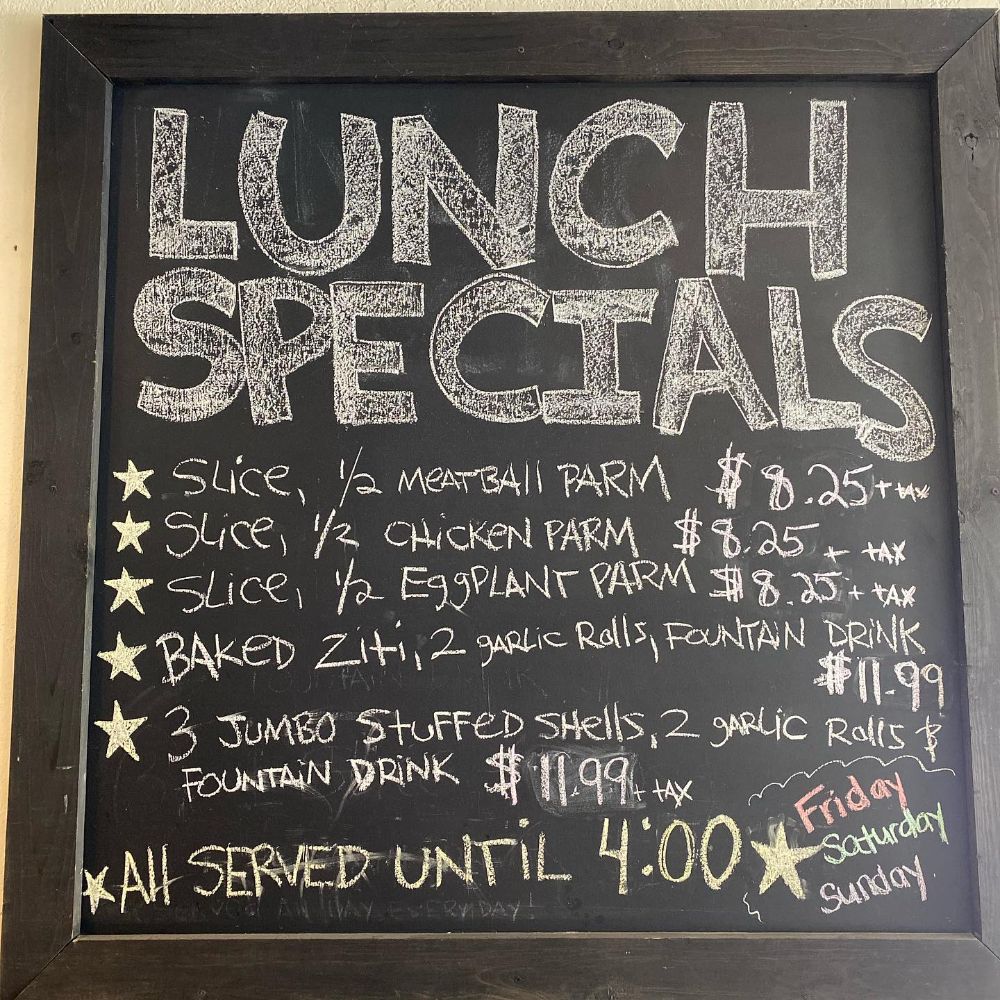 LUNCH
SPECIALS
SLice, 1/2 MEATBall PARM $8.25 + tax
SLice, 1/2 CHicKEN PARM $8.25 + tAX
SLice, 1/2 EggPLANT PARM $8.25 + tAX
BAKED Ziti, 2 gARLic Rolls, FOUNTAiN DRiNK
$11.99
3 JUMBO StuFFED SHells, 2 gARLic Rolls &
FOUNTAiN DRiNK $11.99 + tAX
All SERVED UNTiL 4:00
Friday
Saturday
Sunday